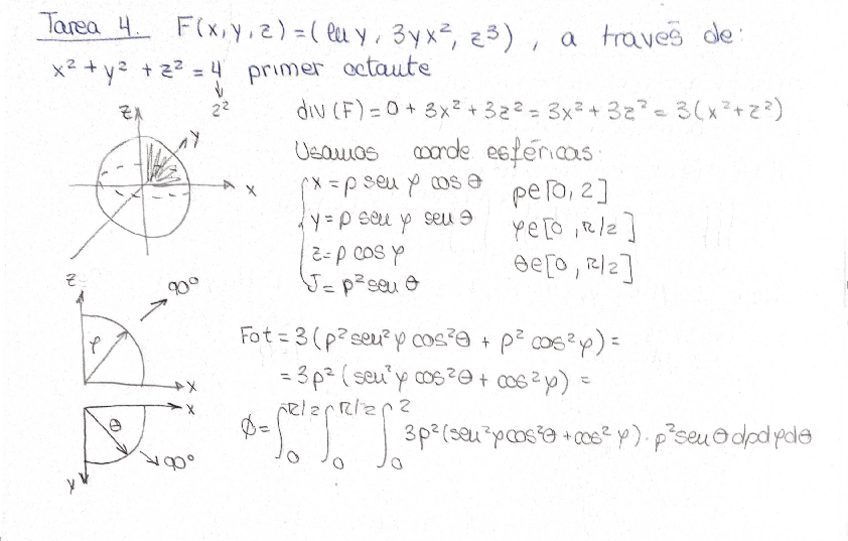 Tarea 4. F(x, y, z) = (ln y, 3yx², z³), a través de:
x² + y² + z² = 4 primer octante
2²
div (F) = 0 + 3x² + 3z² = 3x² + 3z² = 3(x² + z²)
Usamos coorde esféricas:
x = ρ sen φ cos θ ρ∈[0, 2]
y = ρ sen φ sen θ φ∈[0, π/2]
z = ρ cos φ θ∈[0, π/2]
J = ρ² sen θ
z
y
x
z
90°
φ
x
Fot = 3(ρ² sen² φ cos² θ + ρ² cos² φ) =
= 3ρ² (sen² φ cos² θ + cos² φ) =
x
θ
90°
y
ϕ = ∫₀^π/2 ∫₀^π/2 ∫₀² 3ρ² (sen² φ cos² θ + cos² φ) · ρ² sen θ dρ dφ dθ